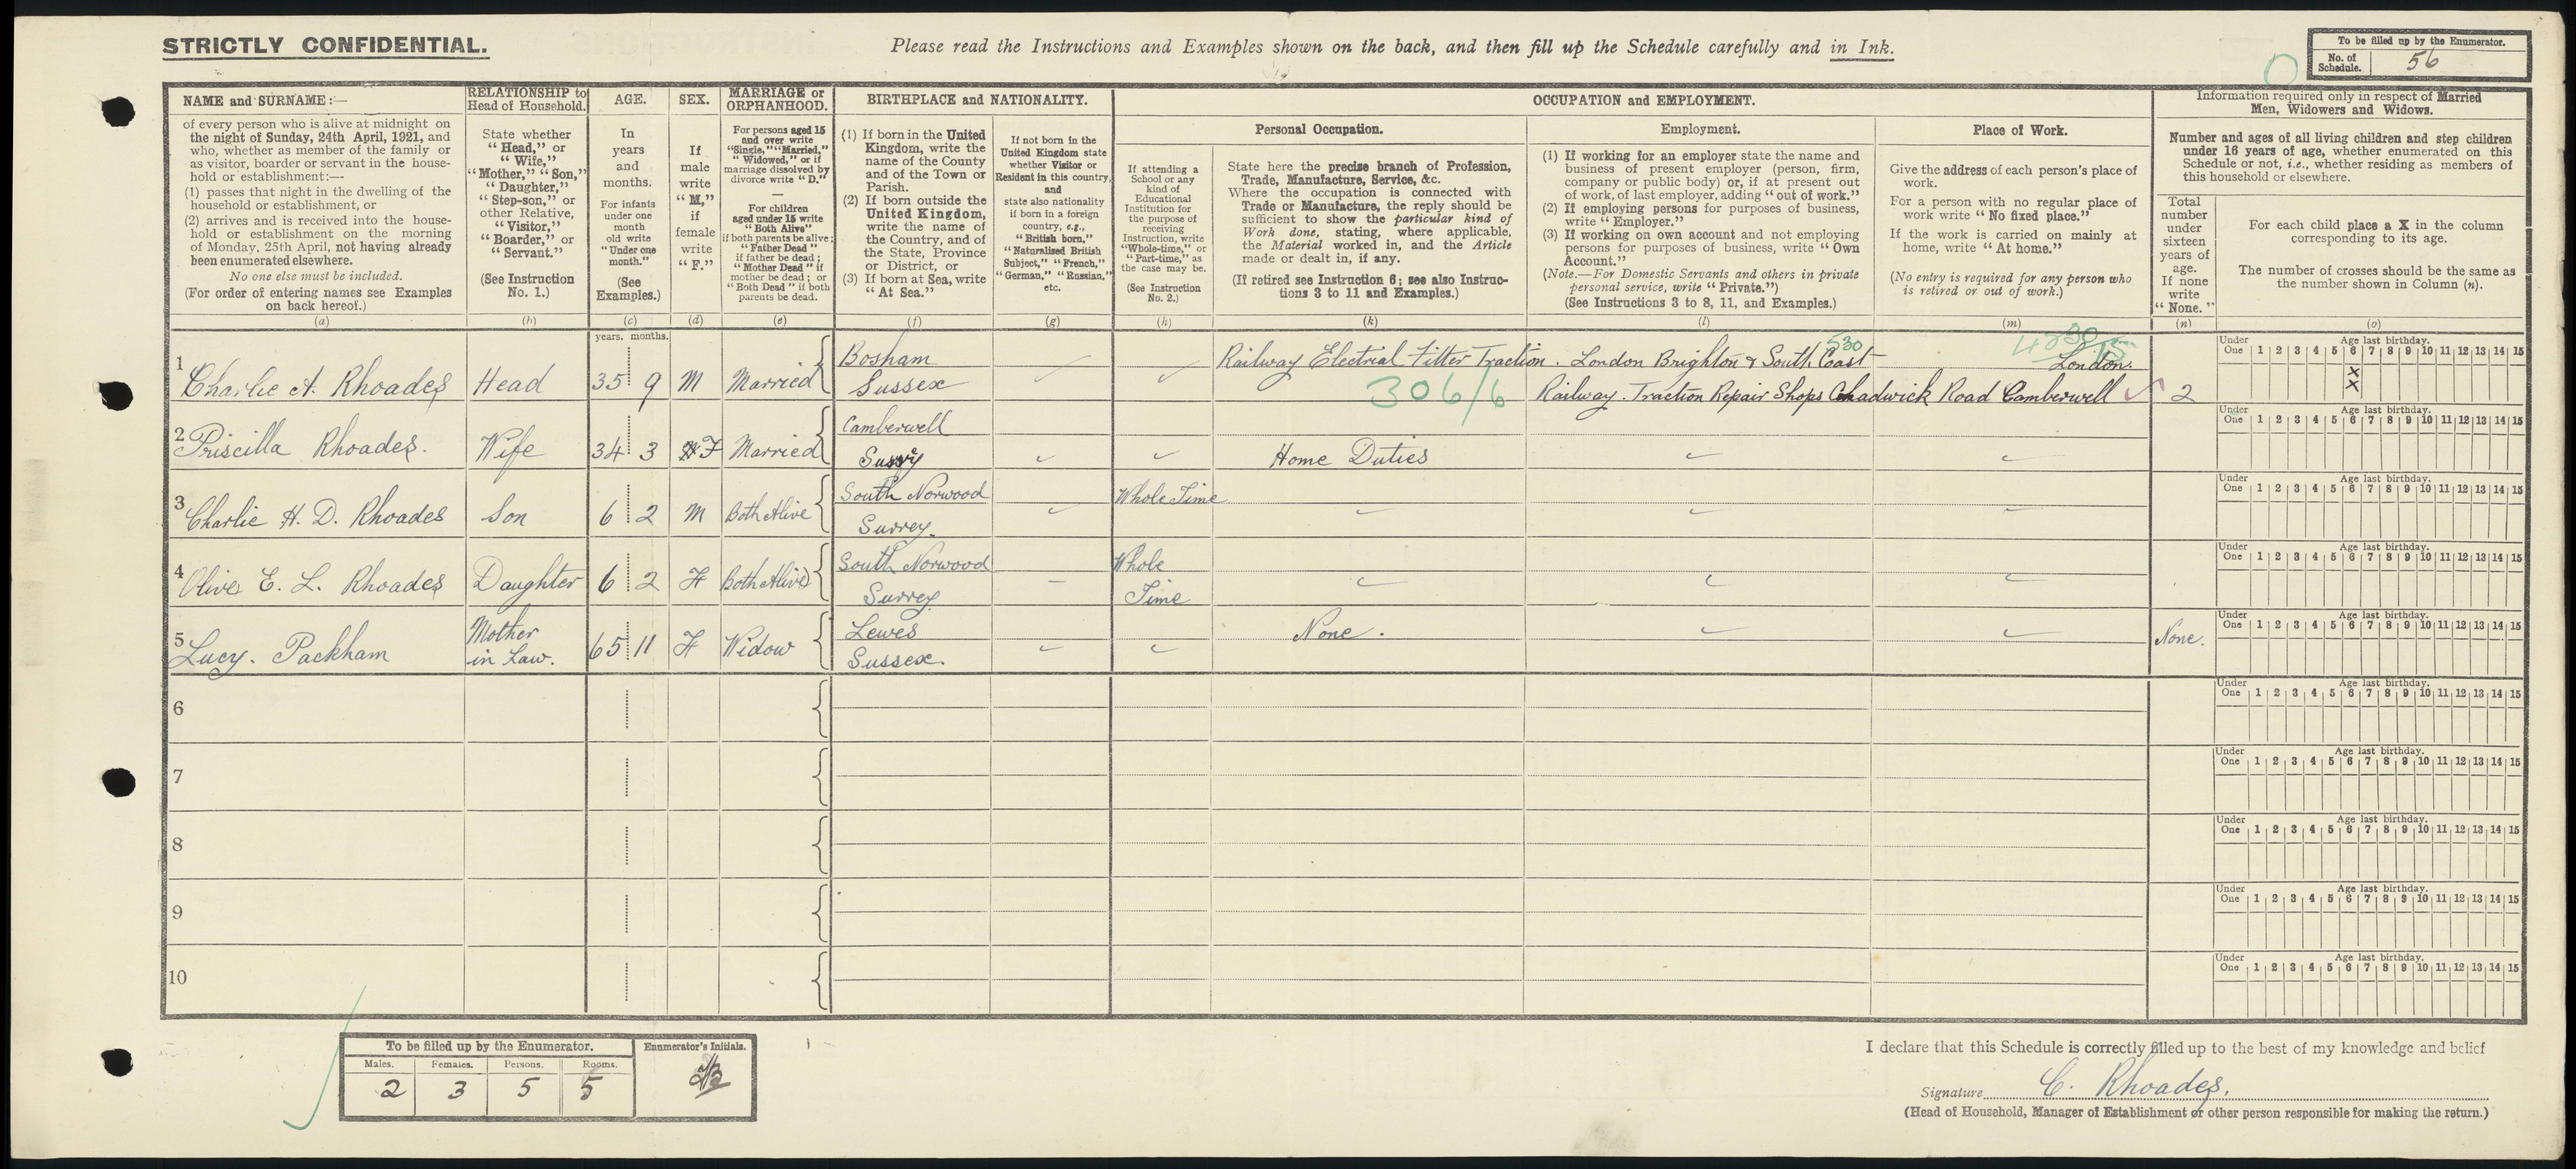 STRICTLY CONFIDENTIAL.
Please read the Instructions and Examples shown on the back, and then fill up the Schedule carefully and in Ink.
To be filled up by the Enumerator.
No. of Schedule. 56
NAME and SURNAME:—
of every person who is alive at midnight on
the night of Sunday, 24th April, 1921, and
who, whether as member of the family or
as visitor, boarder or servant in the house-
hold or establishment:—
(1) passes that night in the dwelling of the
household or establishment, or
(2) arrives and is received into the house-
hold or establishment on the morning
of Monday, 25th April, not having already
been enumerated elsewhere.
No one else must be included.
(For order of entering names see Examples
on back hereof.)
(a)
RELATIONSHIP to
Head of Household.
State whether
"Head," or
"Wife,"
"Mother," "Son,"
"Daughter,"
"Step-son," or
other Relative,
"Visitor,"
"Boarder," or
"Servant."
(See Instruction
No. 1.)
(b)
AGE.
In
years
and
months.
For infants
under one
month
old write
"Under one
month."
(See
Examples.)
(c)
SEX.
If
male
write
"M,"
if
female
write
"F."
(d)
MARRIAGE or
ORPHANHOOD.
For persons aged 15
and over write
"Single," "Married,"
"Widowed," or if
marriage dissolved by
divorce write "D."
—
For children
aged under 15 write
"Both Alive"
if both parents be alive;
"Father Dead"
if father be dead;
"Mother Dead" if
mother be dead; or
"Both Dead" if both
parents be dead.
(e)
BIRTHPLACE and NATIONALITY.
(1) If born in the United
Kingdom, write the
name of the County
and of the Town or
Parish.
(2) If born outside the
United Kingdom,
write the name of
the Country, and of
the State, Province
or District, or
(3) If born at Sea, write
"At Sea."
(f)
If not born in the
United Kingdom state
whether Visitor or
Resident in this country,
and
state also nationality
if born in a foreign
country, e.g.,
"British born,"
"Naturalised British
Subject," "French,"
"German," "Russian,"
etc.
(g)
OCCUPATION and EMPLOYMENT.
If attending a
School or any
kind of
Educational
Institution for
the purpose of
receiving
Instruction, write
"Whole-time," or
"Part-time," as
the case may be.
(See Instruction
No. 2.)
(h)
Personal Occupation.
State here the precise branch of Profession,
Trade, Manufacture, Service, &c.
Where the occupation is connected with
Trade or Manufacture, the reply should be
sufficient to show the particular kind of
Work done, stating, where applicable,
the Material worked in, and the Article
made or dealt in, if any.
(If retired see Instruction 6; see also Instruc-
tions 3 to 11 and Examples.)
(k)
Employment.
(1) If working for an employer state the name and
business of present employer (person, firm,
company or public body) or, if at present out
of work, of last employer, adding "out of work."
(2) If employing persons for purposes of business,
write "Employer."
(3) If working on own account and not employing
persons for purposes of business, write "Own
Account."
(Note.—For Domestic Servants and others in private
personal service, write "Private.")
(See Instructions 3 to 8, 11, and Examples.)
(l)
Place of Work.
Give the address of each person's place of
work.
For a person with no regular place of
work write "No fixed place."
If the work is carried on mainly at
home, write "At home."
(No entry is required for any person who
is retired or out of work.)
(m)
Information required only in respect of Married
Men, Widowers and Widows.
Number and ages of all living children and step children
under 16 years of age, whether enumerated on this
Schedule or not, i.e., whether residing as members of
this household or elsewhere.
Total
number
under
sixteen
years of
age.
If none
write
"None."
(n)
For each child place a X in the column
corresponding to its age.
The number of crosses should be the same as
the number shown in Column (n).
(o)
years. months.
1 Charlie A. Rhoades Head 35 9 M Married Bosham Sussex Railway Electrial Fitter Traction. London Brighton & South Coast London.
Railway. Traction Repair Shops Chadwick Road Camberwell 2
306/6
530
Under One 1 2 3 4 5 6 7 8 9 10 11 12 13 14 15
Age last birthday.
X X
2 Priscilla Rhoades. Wife 34 3 F Married Camberwell Surrey Home Duties
Under One 1 2 3 4 5 6 7 8 9 10 11 12 13 14 15
Age last birthday.
3 Charlie H. D. Rhoades Son 6 2 M Both Alive South Norwood Surrey. Whole Time
Under One 1 2 3 4 5 6 7 8 9 10 11 12 13 14 15
Age last birthday.
4 Olive E. L. Rhoades Daughter 6 2 F Both Alive South Norwood Surrey Whole Time
Under One 1 2 3 4 5 6 7 8 9 10 11 12 13 14 15
Age last birthday.
5 Lucy. Packham Mother in Law. 65 11 F Widow Lewes Sussex. None. None.
Under One 1 2 3 4 5 6 7 8 9 10 11 12 13 14 15
Age last birthday.
6
Under One 1 2 3 4 5 6 7 8 9 10 11 12 13 14 15
Age last birthday.
7
Under One 1 2 3 4 5 6 7 8 9 10 11 12 13 14 15
Age last birthday.
8
Under One 1 2 3 4 5 6 7 8 9 10 11 12 13 14 15
Age last birthday.
9
Under One 1 2 3 4 5 6 7 8 9 10 11 12 13 14 15
Age last birthday.
10
Under One 1 2 3 4 5 6 7 8 9 10 11 12 13 14 15
Age last birthday.
To be filled up by the Enumerator.
Enumerator's Initials.
Males. Females. Persons. Rooms.
2 3 5 5
I declare that this Schedule is correctly filled up to the best of my knowledge and belief
Signature C. Rhoades.
(Head of Household, Manager of Establishment or other person responsible for making the return.)